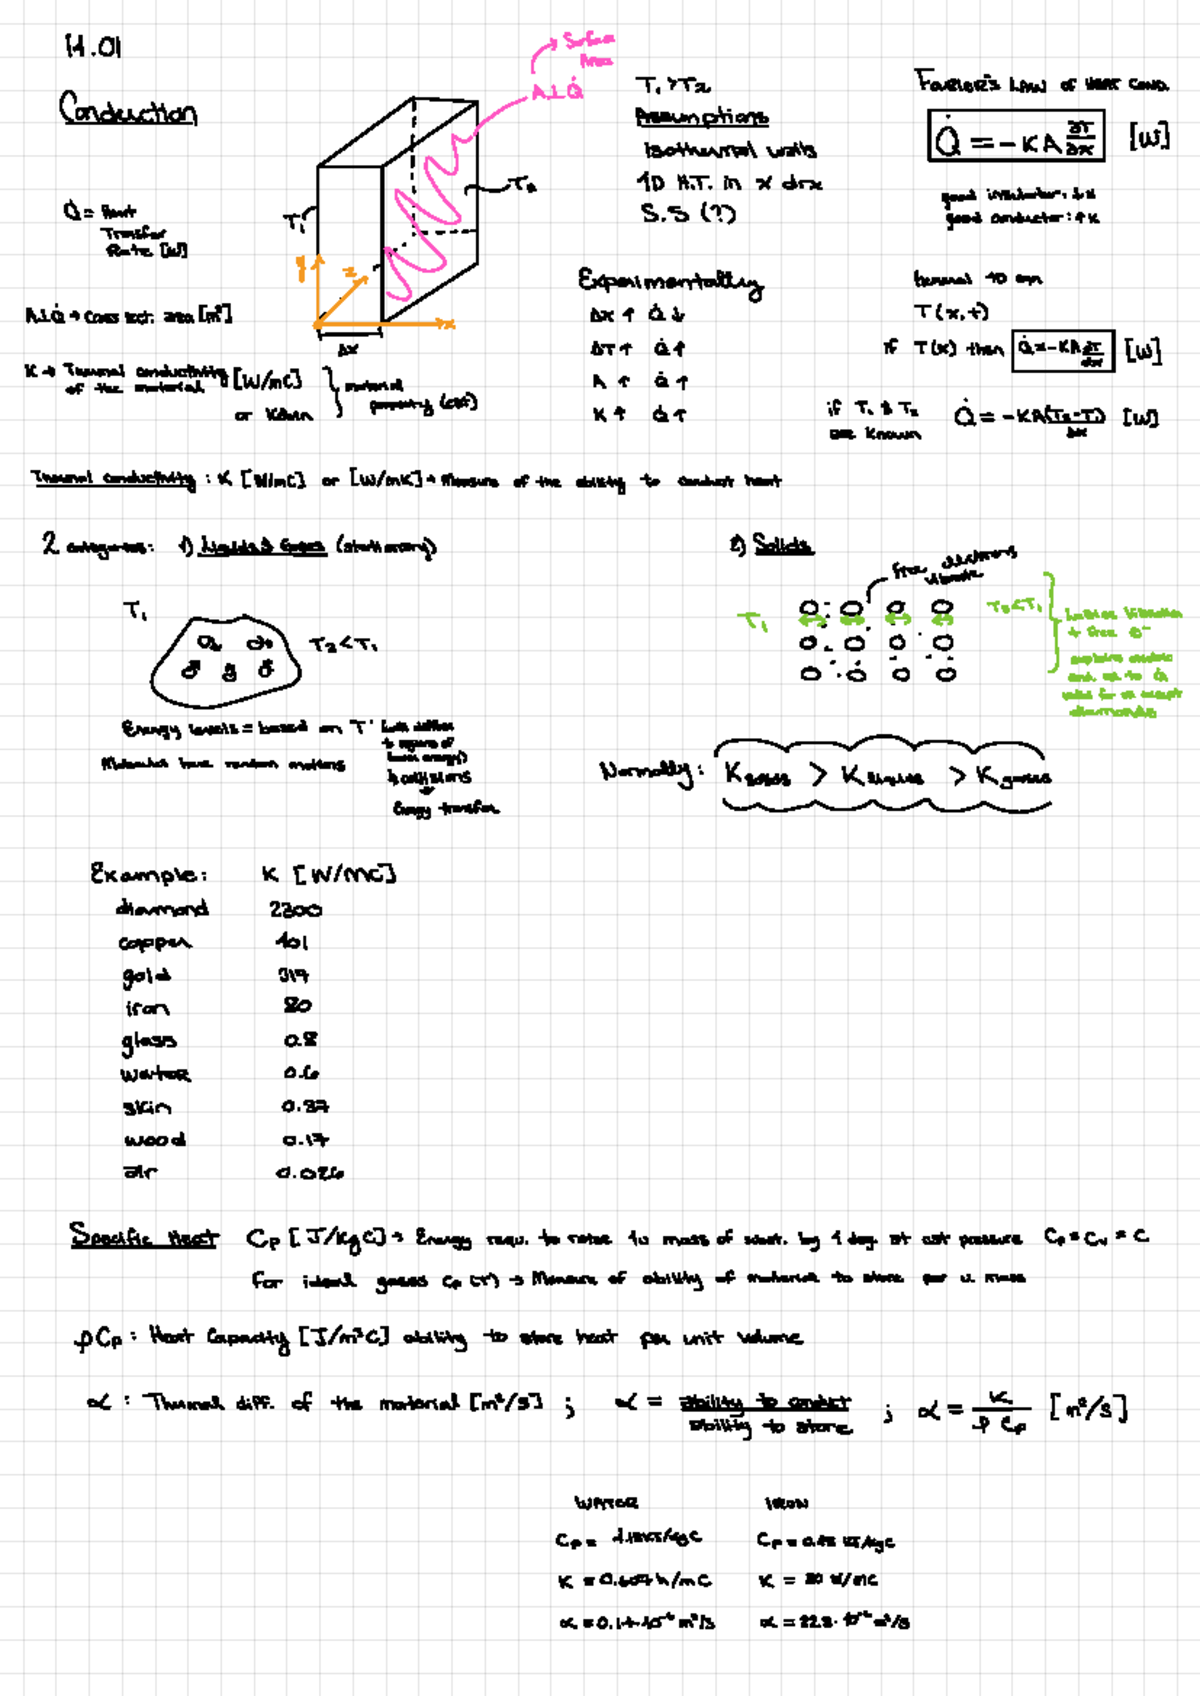 14.01
Conduction
Surface
Area
A⊥Q̇
T₁ > T₂
Assumptions
Isothermal walls
1D H.T. in x drx
S.S (?)
FOURIER'S LAW OF HEAT COND.
Q̇ = -KA ∂T/∂x [W]
good insulator: ↓K
good conductor: ↑K
Q̇ = Heat
Transfer
Rate [W]
T₁
T₂
y
z
x
Δx
A⊥Q̇ → Cross sect. area [m²]
K → Thermal conductivity [W/mC]
of the material
or Kelvin
material
property (cst)
Experimentally
Δx ↑ Q̇ ↓
ΔT ↑ Q̇ ↑
A ↑ Q̇ ↑
K ↑ Q̇ ↑
General 1D eqn
T(x,t)
if T(x) then Q̇ = -KA dT/dx [W]
if T₁ & T₂
are known
Q̇ = -KA(T₂-T₁)/Δx [W]
Thermal conductivity : K [W/mC] or [W/mK] → Measure of the ability to conduct heat
2 categories: 1) Liquids & Gases (stationary)
2) Solids
free electrons
vibrate
T₁
T₂ < T₁
T₁
T₂ < T₁
Lattice Vibration
+ free e⁻
diamonds
Energy levels = based on T
Molecules have random motions
collisions
Energy transfer
Normally: K solids > K liquids > K gases
Example: K [W/mC]
diamond 2300
copper 401
gold 317
iron 80
glass 0.8
water 0.6
skin 0.37
wood 0.17
air 0.026
Specific Heat Cp [J/kgC] → Energy requ. to raise 1u mass of subst. by 1 deg. at cst pressure Cp = Cv = C
for ideal gases Cp(T) → Measure of ability of material to store per u. mass
ρCp : Heat Capacity [J/m³C] ability to store heat per unit volume
α : Thermal diff. of the material [m²/s] ; α = ability to conduct / ability to store ; α = K / ρCp [m²/s]
WATER IRON
Cp = 4.18KJ/kgC Cp = 0.45 KJ/kgC
K = 0.607 W/mC K = 80 W/mC
α = 0.14·10⁻⁶ m²/s α = 22.8·10⁻⁶ m²/s